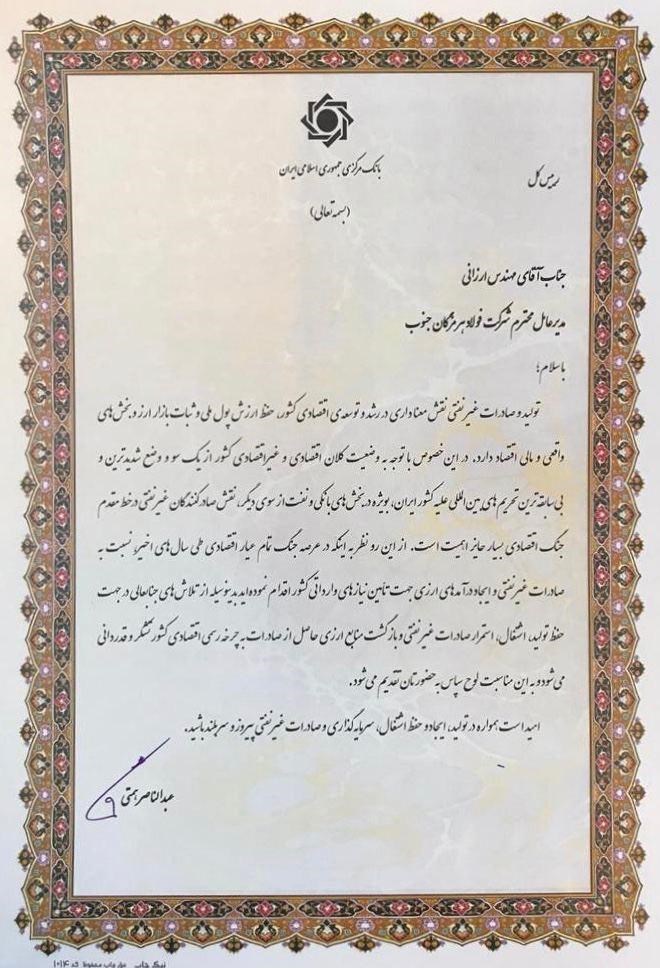 بانک مرکزی جمهوری اسلامی ایران
رئیس کل
(بسمه تعالی)
جناب آقای مهندس ارزانی
مدیرعامل محترم شرکت فولاد هرمزگان جنوب
با سلام؛
تولید و صادرات غیرنفتی نقش معناداری در رشد و توسعه‌ی اقتصادی کشور، حفظ ارزش پول ملی و ثبات بازار ارز و بخش‌های
واقعی و مالی اقتصاد دارد. در این خصوص با توجه به وضعیت کلان اقتصادی و غیراقتصادی کشور از یک سو و وضع شدیدترین و
بی‌سابقه‌ترین تحریم‌های بین‌المللی علیه کشور ایران، بویژه در بخش‌های بانکی و نفت از سوی دیگر، نقش صادرکنندگان غیرنفتی در خط مقدم
جنگ اقتصادی بسیار حائز اهمیت است. از این رو نظر به اینکه در عرصه جنگ تمام عیار اقتصادی طی سال‌های اخیر، نسبت به
صادرات غیرنفتی و ایجاد درآمدهای ارزی جهت تأمین نیازهای وارداتی کشور اقدام نموده‌اید بدینوسیله از تلاش‌های جنابعالی در جهت
حفظ تولید، اشتغال، استمرار صادرات غیرنفتی و بازگشت منابع ارزی حاصل از صادرات به چرخه رسمی اقتصادی کشور تشکر و قدردانی
می‌شود و به این مناسبت لوح سپاس به حضورتان تقدیم می‌شود.
امید است همواره در تولید، ایجاد و حفظ اشتغال، سرمایه‌گذاری و صادرات غیرنفتی پیروز و سربلند باشید.
عبدالناصر همتی